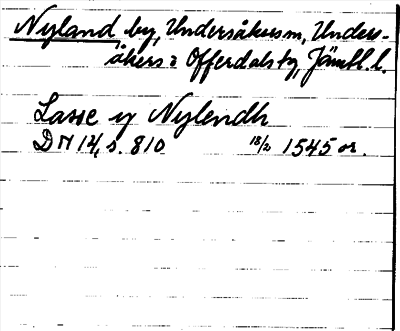 Nyland by, Undersåkers sn, Unders-
åkers o Offerdals tg, Jämtl. l.
Lasse y Nylendh
DN 14, s. 810 18/2 1545 or.